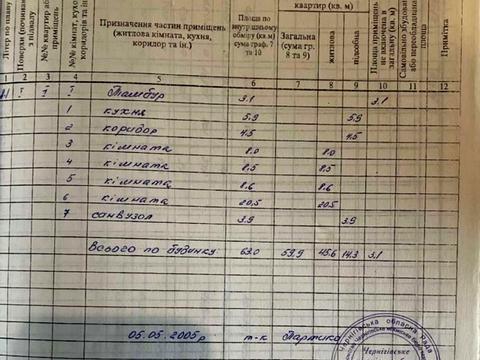 Літер по плану
Поверхи (починаючи з підвалу
№№ квартир або приміщень
№№ кімнат, кухонь, коридорів та ін.
Призначення частин приміщень (житлова кімната, кухня, коридор та ін.)
Площа по внутрішньому обміру (кв м) сума граф. 7 та 10
квартир (кв. м)
Загальна (сума гр. 8 та 9)
житлова
підсобна
Площа приміщень не включена в загальну (кв. м.)
Самовільно збудована або переобладнана площа
Примітка
1 2 3 4 5 6 7 8 9 10 11 12
Н І І І Тамбур 3.1 3.1
1 кухня 5.9 5.9
2 коридор 4.5 4.5
3 кімната 8.0 8.0
4 кімната 8.5 8.5
5 кімната 8.6 8.6
6 кімната 20.5 20.5
7 санвузол 3.9 3.9
Всього по будинку: 63.0 59.9 45.6 14.3 3.1
05.05.2005р т-к
Чернігівська обласна Рада
Чернігівське